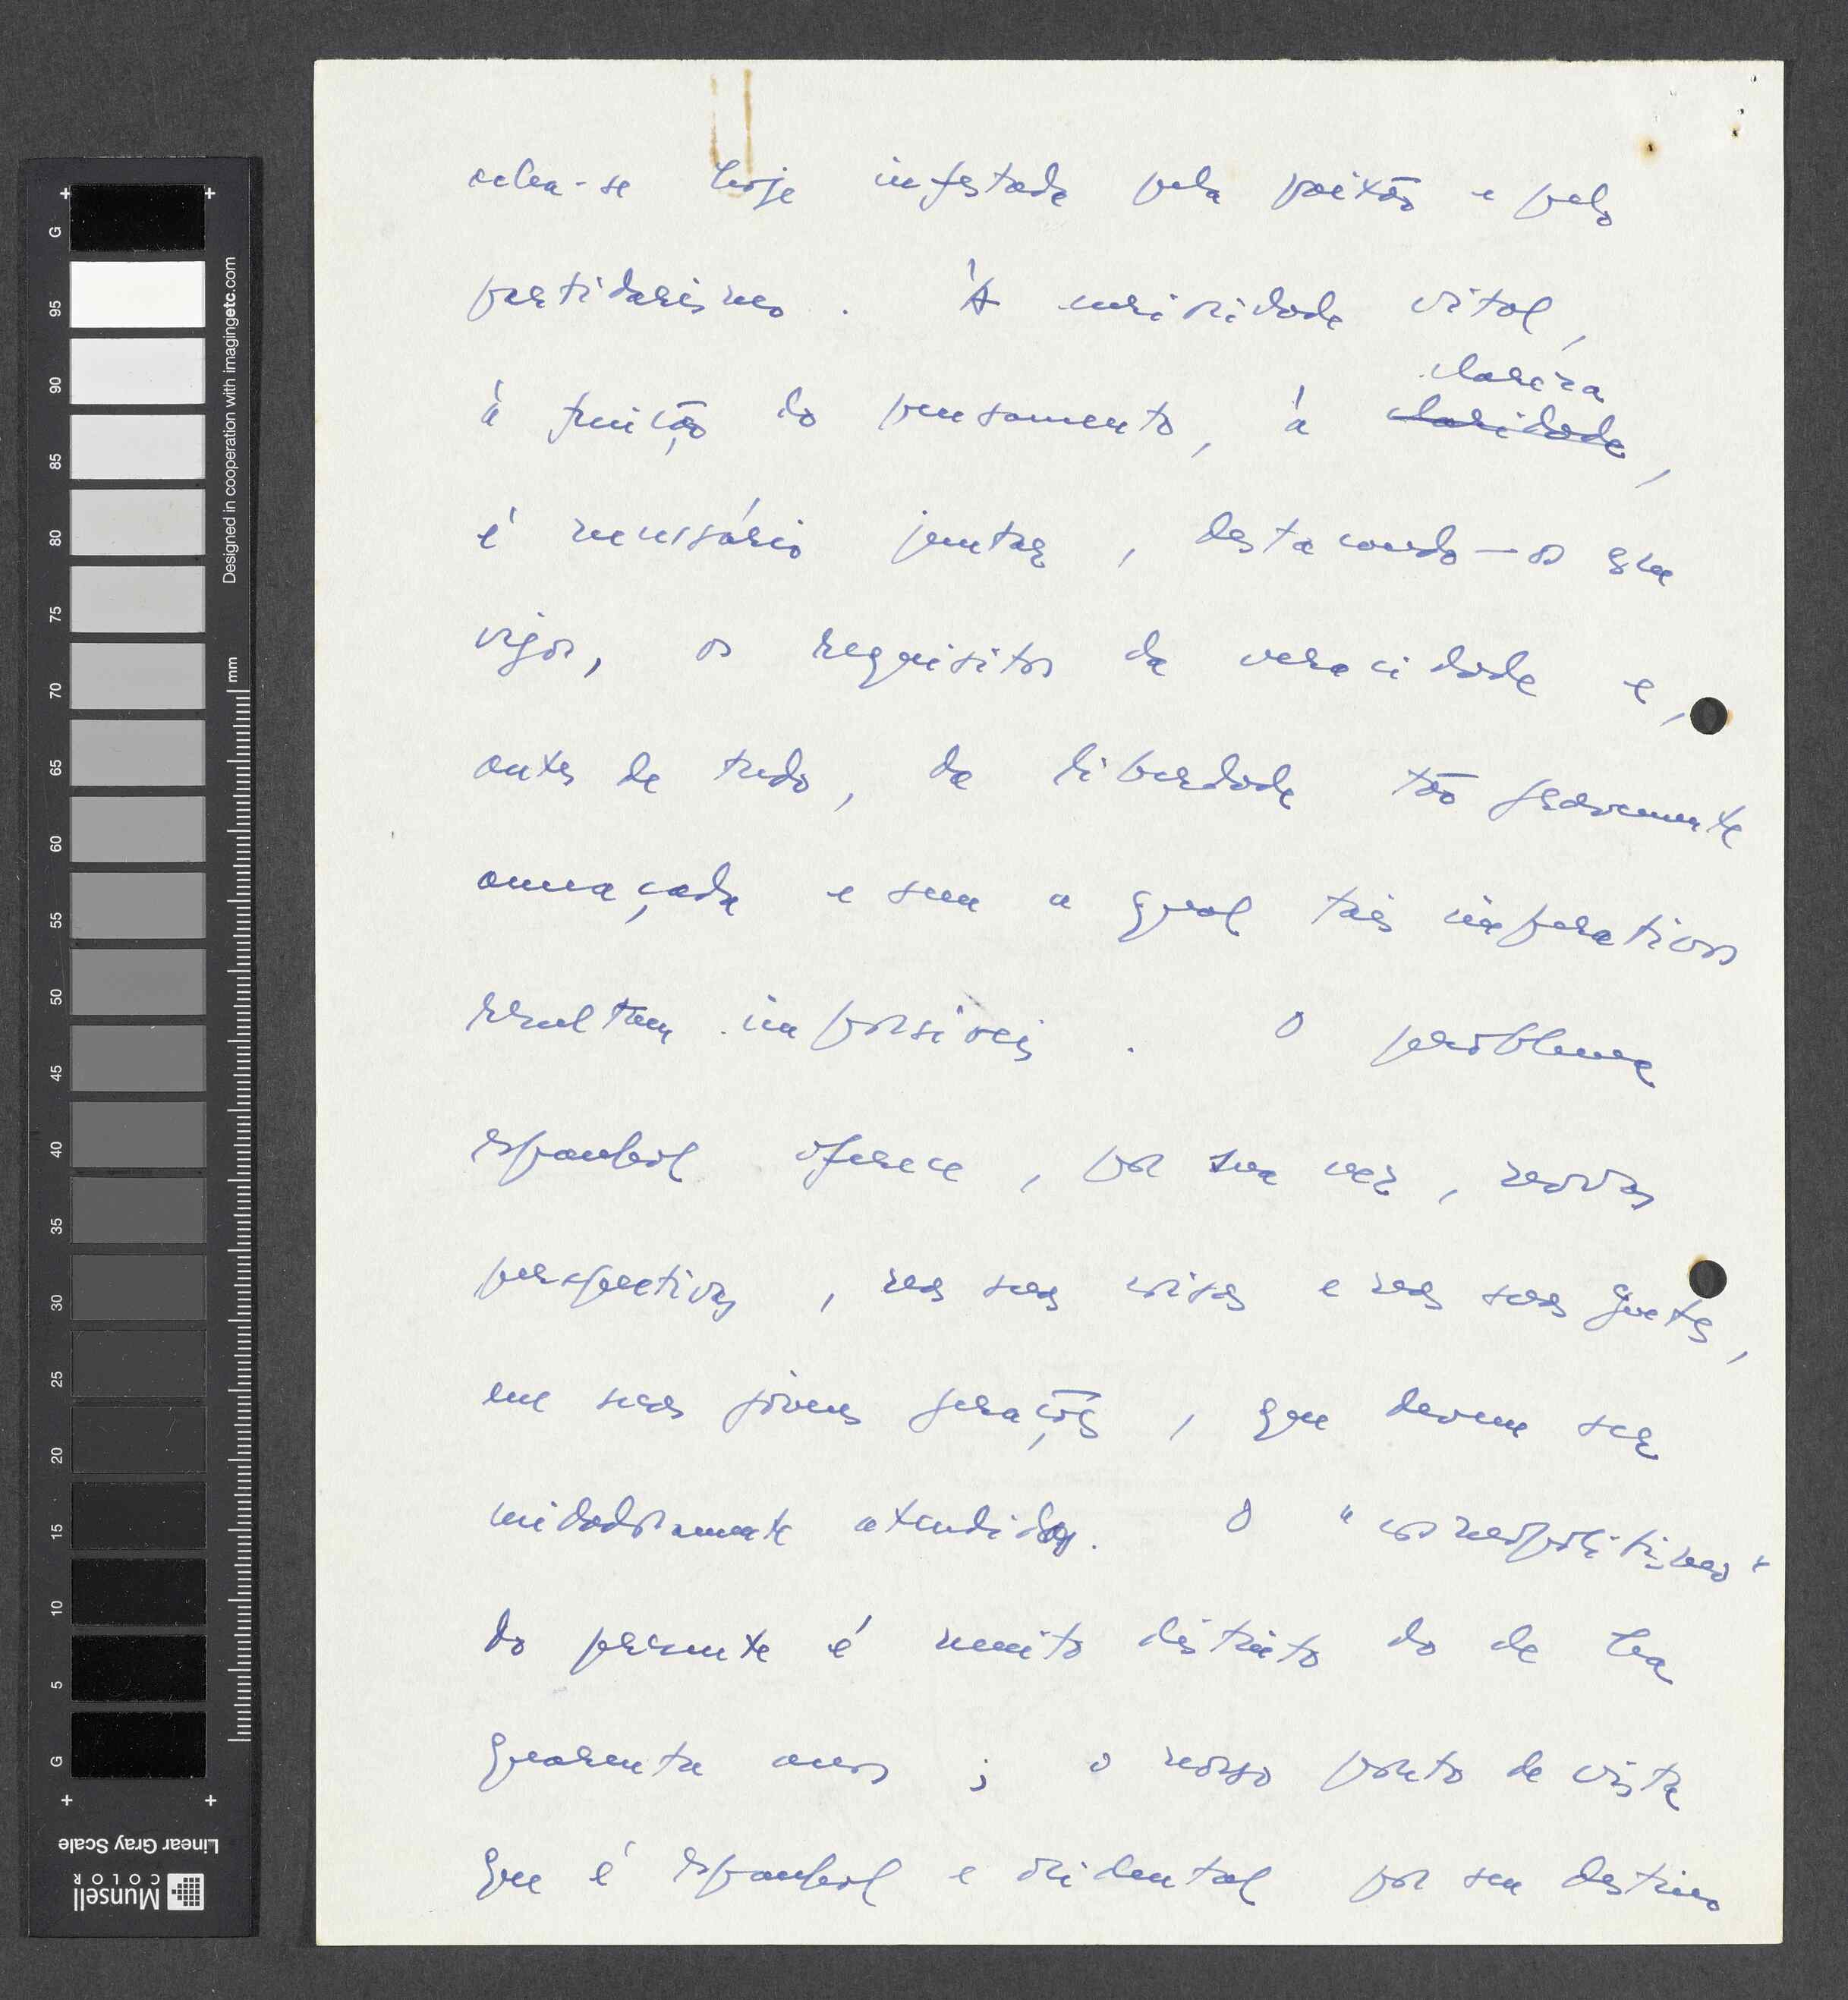 acha-se hoje infestada pela paixão e pelo
partidarismo. À curiosidade vital,
clareza
à fruição do pensamento, à claridade,
é necessário juntar, destacando-os em
vigor, os requisitos da veracidade e,
antes de tudo, da liberdade tão gravemente
ameaçada e sem a qual tais imperativos
resultam impossíveis. O problema
espanhol oferece, por sua vez, novas
perspectivas, nas suas coisas e nas suas gentes,
em suas jóvens gerações, que devem ser
cuidadosamente atendidas. O "cosmopolitismo"
do presente é muito distinto do de ha
quarenta anos; o nosso ponto de vista
que é espanhol e ocidental por seu destino
G 95 90 85 80 75 70 65 60 55 50 45 40 35 30 25 20 15 10 5 G
Designed in cooperation with imagingetc.com
mm
Linear Gray Scale
Munsell
COLOR